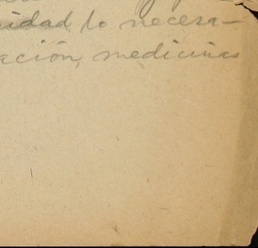 idad lo necesa-
ación, medicinas